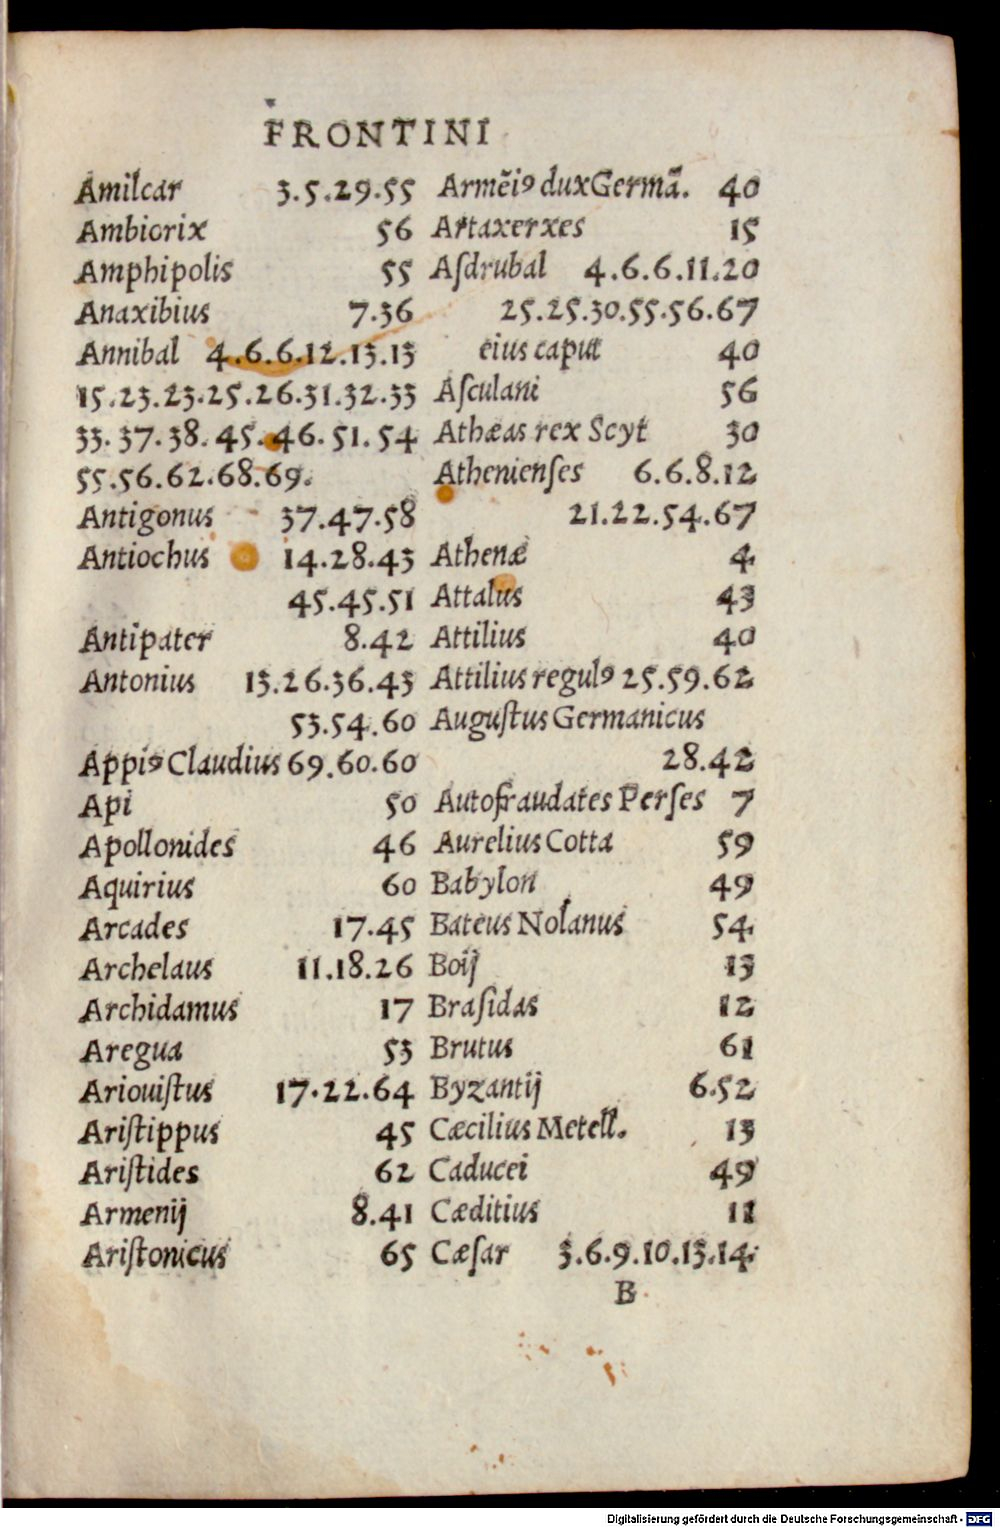 FRONTINI
Amilcar 3.5.29.55
Ambiorix 56
Amphipolis 55
Anaxibius 7.36
Annibal 4.6.6.12.13.13
15.23.23.25.26.31.32.33
33.37.38.45.46.51.54
55.56.62.68.69.
Antigonus 37.47.58
Antiochus 14.28.43
45.45.51
Antipater 8.42
Antonius 13.26.36.43
53.54.60
Appiꝰ Claudius 69.60.60
Api 50
Apollonides 46
Aquirius 60
Arcades 17.45
Archelaus 11.18.26
Archidamus 17
Aregua 53
Ariouiſtus 17.22.64
Ariſtippus 45
Ariſtides 62
Armenij 8.41
Ariſtonicus 65
Armẽiꝰ dux Germã. 40
Artaxerxes 15
Aſdrubal 4.6.6.11.20
25.25.30.55.56.67
eius caput 40
Aſculani 56
Athæas rex Scyt 30
Athenienſes 6.6.8.12
21.22.54.67
Athenæ 4
Attalus 43
Attilius 40
Attilius regulꝰ 25.59.62
Auguſtus Germanicus
28.42
Autofraudates Perſes 7
Aurelius Cotta 59
Babylon 49
Bateus Nolanus 54
Boij 13
Braſidas 12
Brutus 61
Byzantij 6.52
Cæcilius Metell. 13
Caducei 49
Cæditius 11
Cæſar 3.6.9.10.13.14
B
Digitalisierung gefördert durch die Deutsche Forschungsgemeinschaft - DFG